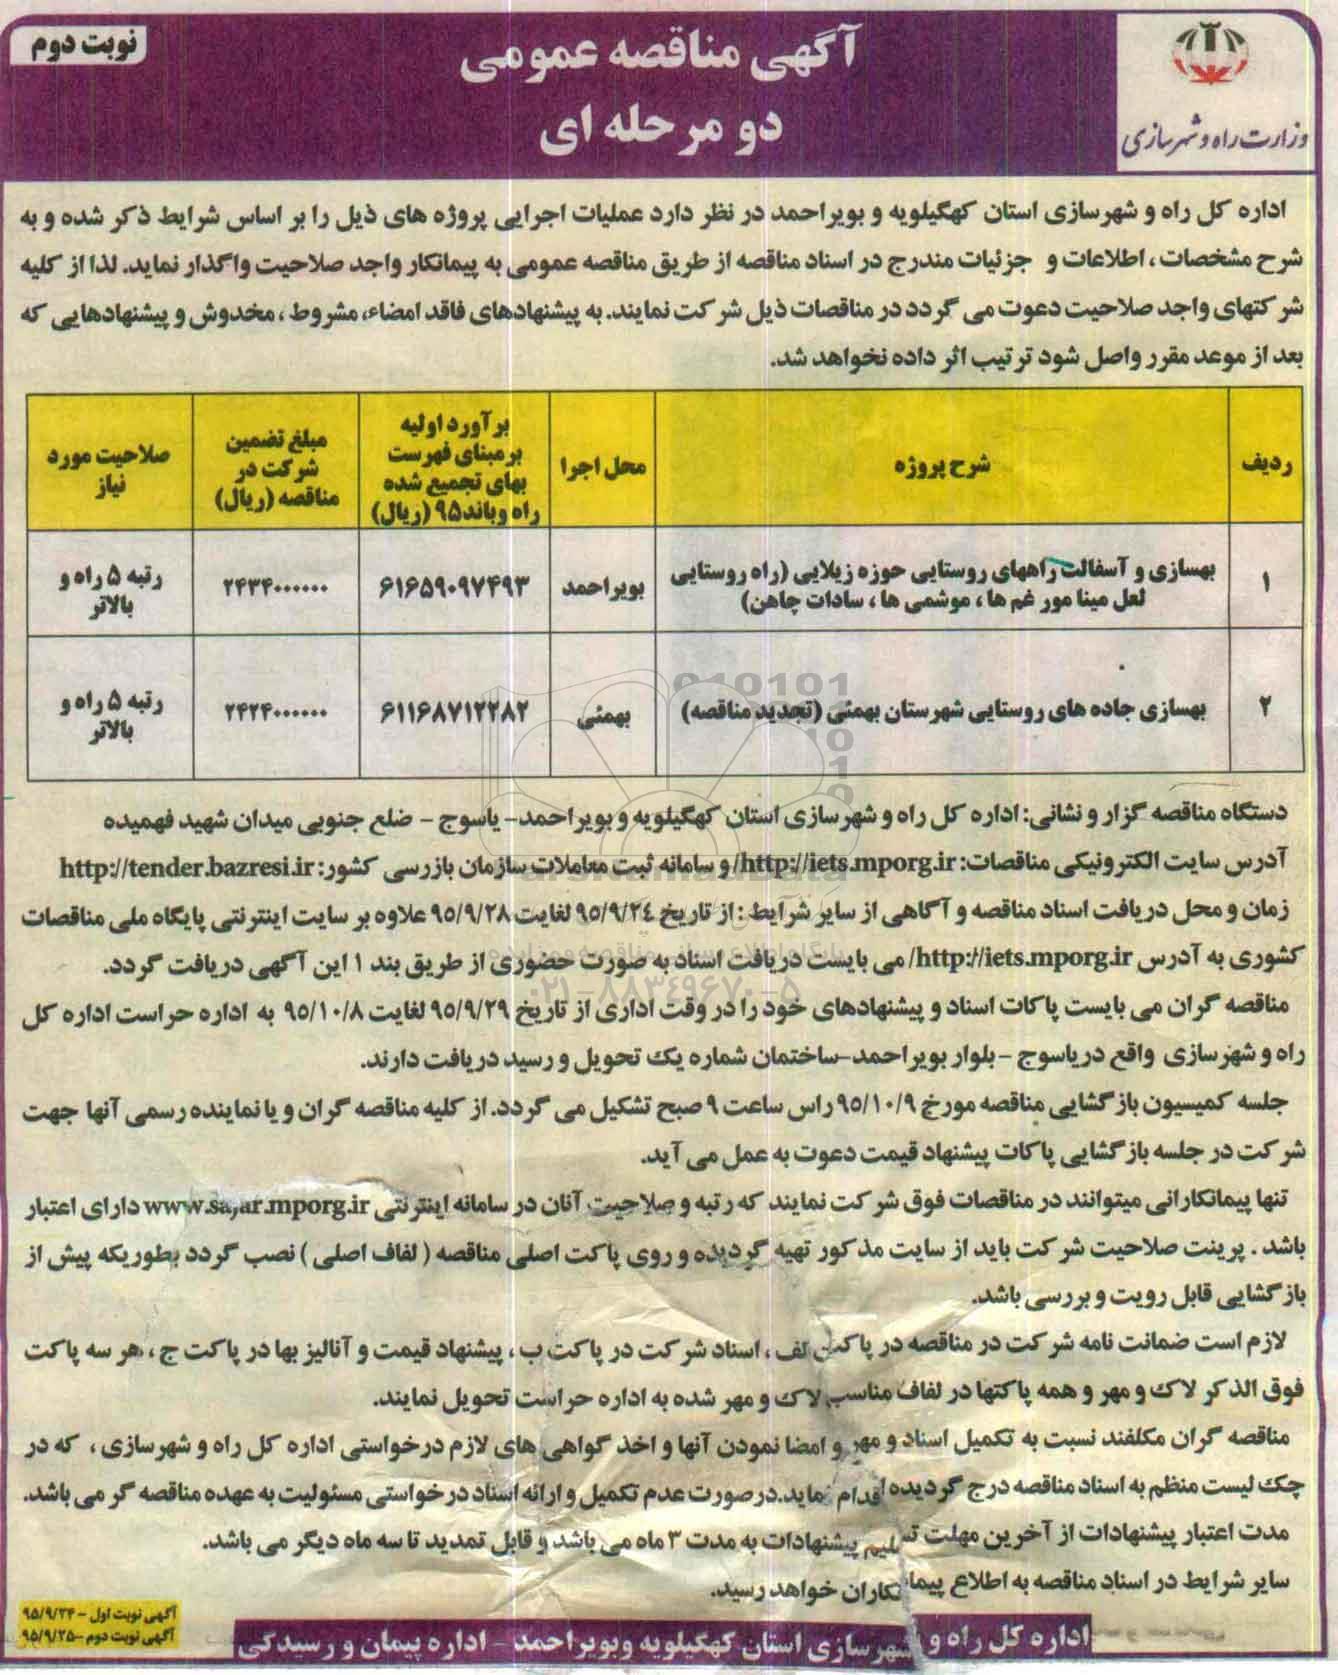 نوبت دوم
آگهی مناقصه عمومی
دو مرحله ای
وزارت راه و شهرسازی
اداره کل راه و شهرسازی استان کهگیلویه و بویراحمد در نظر دارد عملیات اجرایی پروژه های ذیل را بر اساس شرایط ذکر شده و به
شرح مشخصات ، اطلاعات و جزئیات مندرج در اسناد مناقصه از طریق مناقصه عمومی به پیمانکار واجد صلاحیت واگذار نماید. لذا از کلیه
شرکتهای واجد صلاحیت دعوت می گردد در مناقصات ذیل شرکت نمایند. به پیشنهادهای فاقد امضاء، مشروط ، مخدوش و پیشنهادهایی که
بعد از موعد مقرر واصل شود ترتیب اثر داده نخواهد شد.
ردیف
شرح پروژه
محل اجرا
برآورد اولیه
برمبنای فهرست
بهای تجمیع شده
راه وباند۹۵ (ریال)
مبلغ تضمین
شرکت در
مناقصه (ریال)
صلاحیت مورد
نیاز
۱
بهسازی و آسفالت راههای روستایی حوزه زیلایی (راه روستایی
لعل مینا مور غم ها ، موشمی ها ، سادات چاهن)
بویراحمد
۶۱۶۵۹۰۹۷۴۹۳
۲۴۳۴۰۰۰۰۰۰
رتبه ۵ راه و
بالاتر
۲
بهسازی جاده های روستایی شهرستان بهمئی (تجدید مناقصه)
بهمئی
۶۱۱۶۸۷۱۲۲۸۲
۲۴۲۴۰۰۰۰۰۰
رتبه ۵ راه و
بالاتر
دستگاه مناقصه گزار و نشانی: اداره کل راه و شهرسازی استان کهگیلویه و بویراحمد- یاسوج - ضلع جنوبی میدان شهید فهمیده
آدرس سایت الکترونیکی مناقصات: http://iets.mporg.ir/ و سامانه ثبت معاملات سازمان بازرسی کشور: http://tender.bazresi.ir
زمان و محل دریافت اسناد مناقصه و آگاهی از سایر شرایط : از تاریخ ۹۵/۹/۲٤ لغایت ۹۵/۹/۲۸ علاوه بر سایت اینترنتی پایگاه ملی مناقصات
کشوری به آدرس http://iets.mporg.ir/ می بایست دریافت اسناد به صورت حضوری از طریق بند ۱ این آگهی دریافت گردد.
مناقصه گران می بایست پاکات اسناد و پیشنهادهای خود را در وقت اداری از تاریخ ۹۵/۹/۲۹ لغایت ۹۵/۱۰/۸ به اداره حراست اداره کل
راه و شهرسازی واقع در یاسوج - بلوار بویراحمد-ساختمان شماره یک تحویل و رسید دریافت دارند.
جلسه کمیسیون بازگشایی مناقصه مورخ ۹۵/۱۰/۹ راس ساعت ۹ صبح تشکیل می گردد. از کلیه مناقصه گران و یا نماینده رسمی آنها جهت
شرکت در جلسه بازگشایی پاکات پیشنهاد قیمت دعوت به عمل می آید.
تنها پیمانکارانی میتوانند در مناقصات فوق شرکت نمایند که رتبه و صلاحیت آنان در سامانه اینترنتی www.sajar.mporg.ir دارای اعتبار
باشد . پرینت صلاحیت شرکت باید از سایت مذکور تهیه گردیده و روی پاکت اصلی مناقصه ( لفاف اصلی ) نصب گردد بطوریکه پیش از
بازگشایی قابل رویت و بررسی باشد.
لازم است ضمانت نامه شرکت در مناقصه در پاکت الف ، اسناد شرکت در پاکت ب ، پیشنهاد قیمت و آنالیز بها در پاکت ج ، هر سه پاکت
فوق الذکر لاک و مهر و همه پاکتها در لفاف مناسب لاک و مهر شده به اداره حراست تحویل نمایند.
مناقصه گران مکلفند نسبت به تکمیل اسناد و مهر و امضا نمودن آنها و اخذ گواهی های لازم درخواستی اداره کل راه و شهرسازی ، که در
چک لیست منظم به اسناد مناقصه درج گردیده اقدام نماید. در صورت عدم تکمیل و ارائه اسناد درخواستی مسئولیت به عهده مناقصه گر می باشد.
مدت اعتبار پیشنهادات از آخرین مهلت تسلیم پیشنهادات به مدت ۳ ماه می باشد و قابل تمدید تا سه ماه دیگر می باشد.
سایر شرایط در اسناد مناقصه به اطلاع پیمانکاران خواهد رسید.
آگهی نوبت اول - ۹۵/۹/۲۴
آگهی نوبت دوم -۹۵/۹/۲۵
اداره کل راه و شهرسازی استان کهگیلویه وبویراحمد - اداره پیمان و رسیدگی
۰۲۱-۸۸۳۴۹۶۷۰-۵